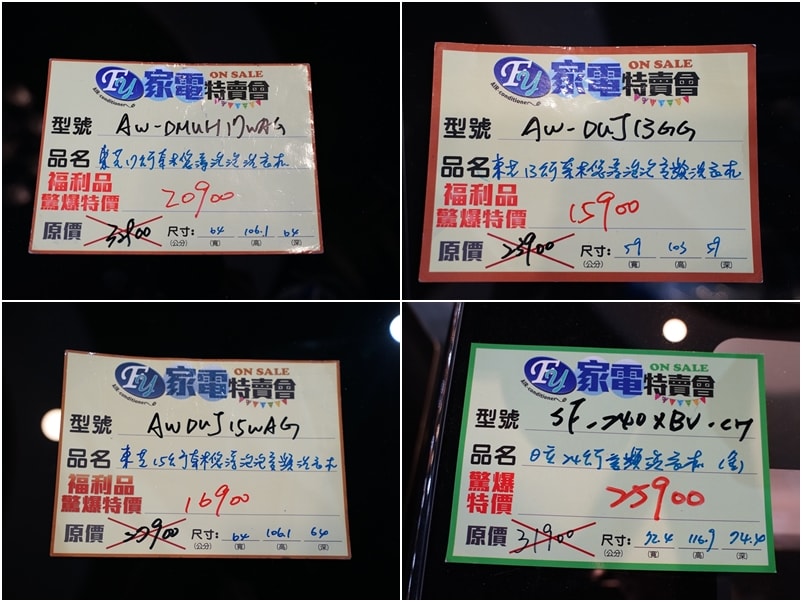 FU 家電 ON SALE 特賣會
AIR-conditioner
型號 AW-DMUH17WAG
品名 東芝17公斤奈米悠浮泡泡洗衣機
福利品
驚爆特價 20900
原價 32900 尺寸: 64 106.1 64
(公分) (寬) (高) (深)
FU 家電 ON SALE 特賣會
AIR-conditioner
型號 AW-DUJ13GG
品名 東芝13公斤奈米悠浮泡泡變頻洗衣機
福利品
驚爆特價 15900
原價 25900 尺寸: 59 103 59
(公分) (寬) (高) (深)
FU 家電 ON SALE 特賣會
AIR-conditioner
型號 AWDUJ15WAG
品名 東芝15公斤奈米悠浮泡泡變頻洗衣機
福利品
驚爆特價 16900
原價 29900 尺寸: 64 106.1 64
(公分) (寬) (高) (深)
FU 家電 ON SALE 特賣會
AIR-conditioner
型號 SF-240XBV-C7
品名 日立24公斤變頻洗衣機 (金)
驚爆
特價 25900
原價 31900 尺寸: 72.4 116.9 74.40
(公分) (寬) (高) (深)